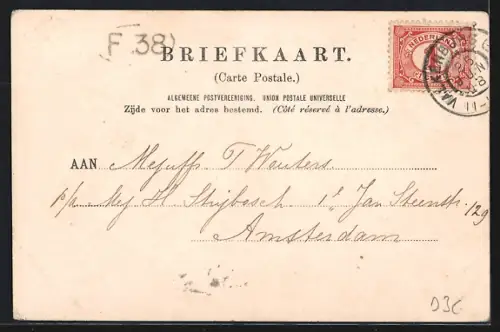 (F 38)
BRIEFKAART.
(Carte Postale.)
ALGEMEENE POSTVEREENIGING. UNION POSTALE UNIVERSELLE
Zijde voor het adres bestemd. (Côté réservé à l'adresse.)
NEDERLAND
VALKENBURG
AAN Mejuffr. T Wouters
p/a Mej H. Strijbosch 1e Jan Steenstr. 129
Amsterdam
D3C